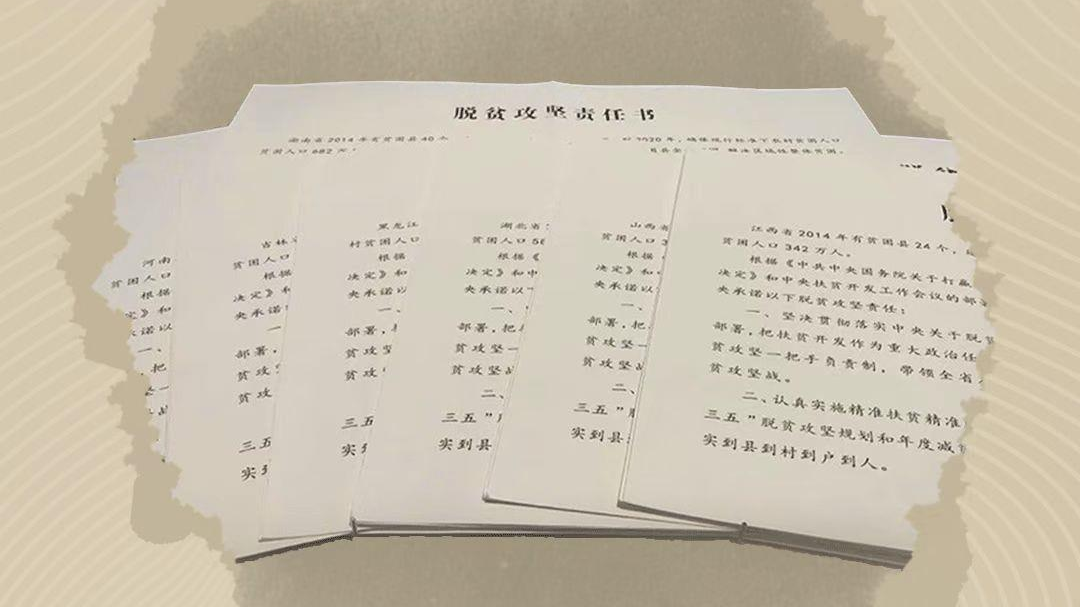 脱贫攻坚责任书
湖南省2014年有贫困县40个
贫困人口682万
2020年，确保现行标准下农村贫困人口
解决区域性整体贫困。
河南
贫困人口
根据
决定》和
央承诺以
一、
把
贫攻坚
坚战
吉林
贫困人口
根据
决定》和
央承诺以
一
部署，
贫攻坚
贫攻
三五
实到
黑龙江
村贫困人口
根据
决定》
央承诺
一
部署，
贫攻坚
贫攻
三五
实
湖北省
贫困人口58
根据《
决定》和中
央承诺以
一、
部署，把
贫攻坚一
贫攻坚
二
三五”
实到县
山西省
贫困人口3
根据
决定》和
央承诺以
一、
部署，把
贫攻坚一
贫攻坚
二、
三五”
实到县
江西省2014年有贫困县24个，
贫困人口342万人。
根据《中共中央国务院关于打赢
决定》和中央扶贫开发工作会议的部
央承诺以下脱贫攻坚责任：
一、坚决贯彻落实中央关于脱
部署，把扶贫开发作为重大政治任
贫攻坚一把手负责制，带领全省
贫攻坚战。
二、认真实施精准扶贫精准
三五”脱贫攻坚规划和年度减
实到县到村到户到人。